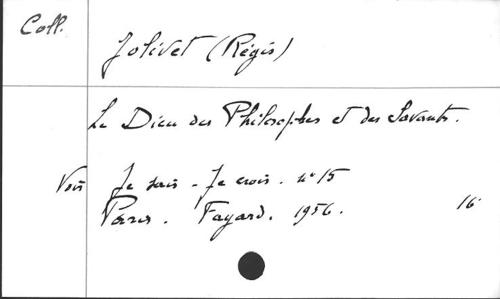 Coll.
Jolivet (Régis)
Le Dieu des Philosophes et des Savants.
Voir Je sais - Je crois. n° 15
Paris. Fayard. 1956. 16°